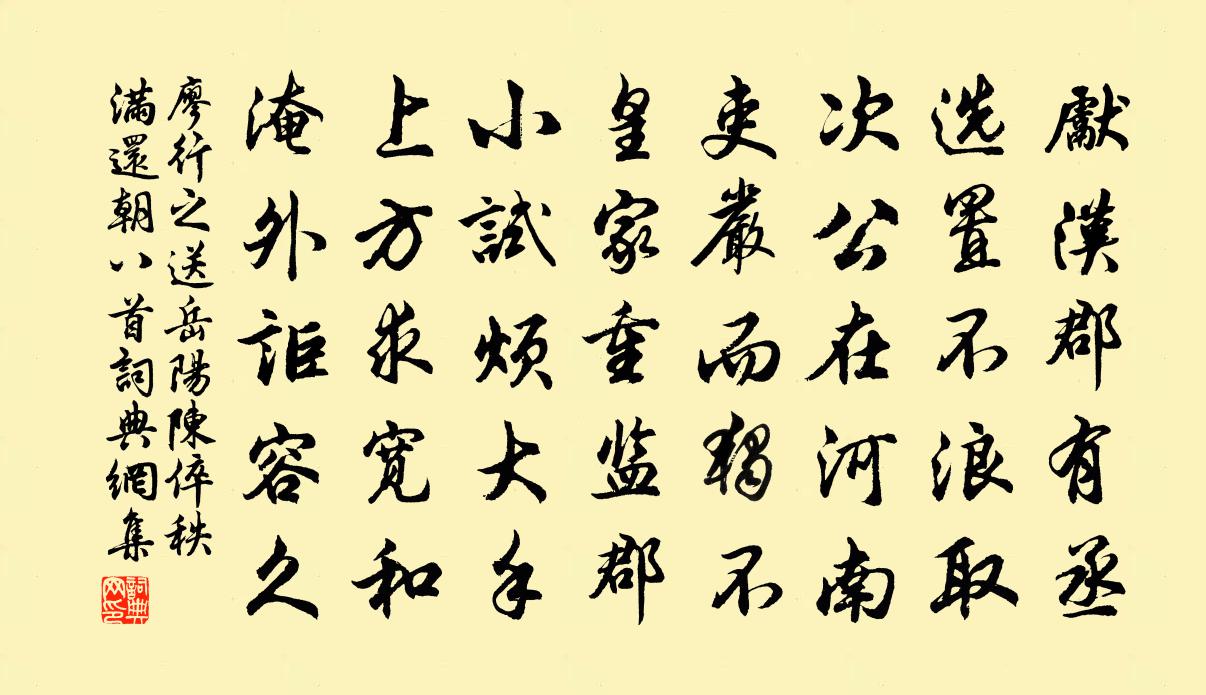 獻漢郡有丞
选置不浪取
次公在河南
吏嚴而獨不
皇家重监郡
小試煩大手
上方求宽和
淹外詎容久
廖行之送岳陽陳倅秩
滿還朝八首詞典網集
詞典
网印